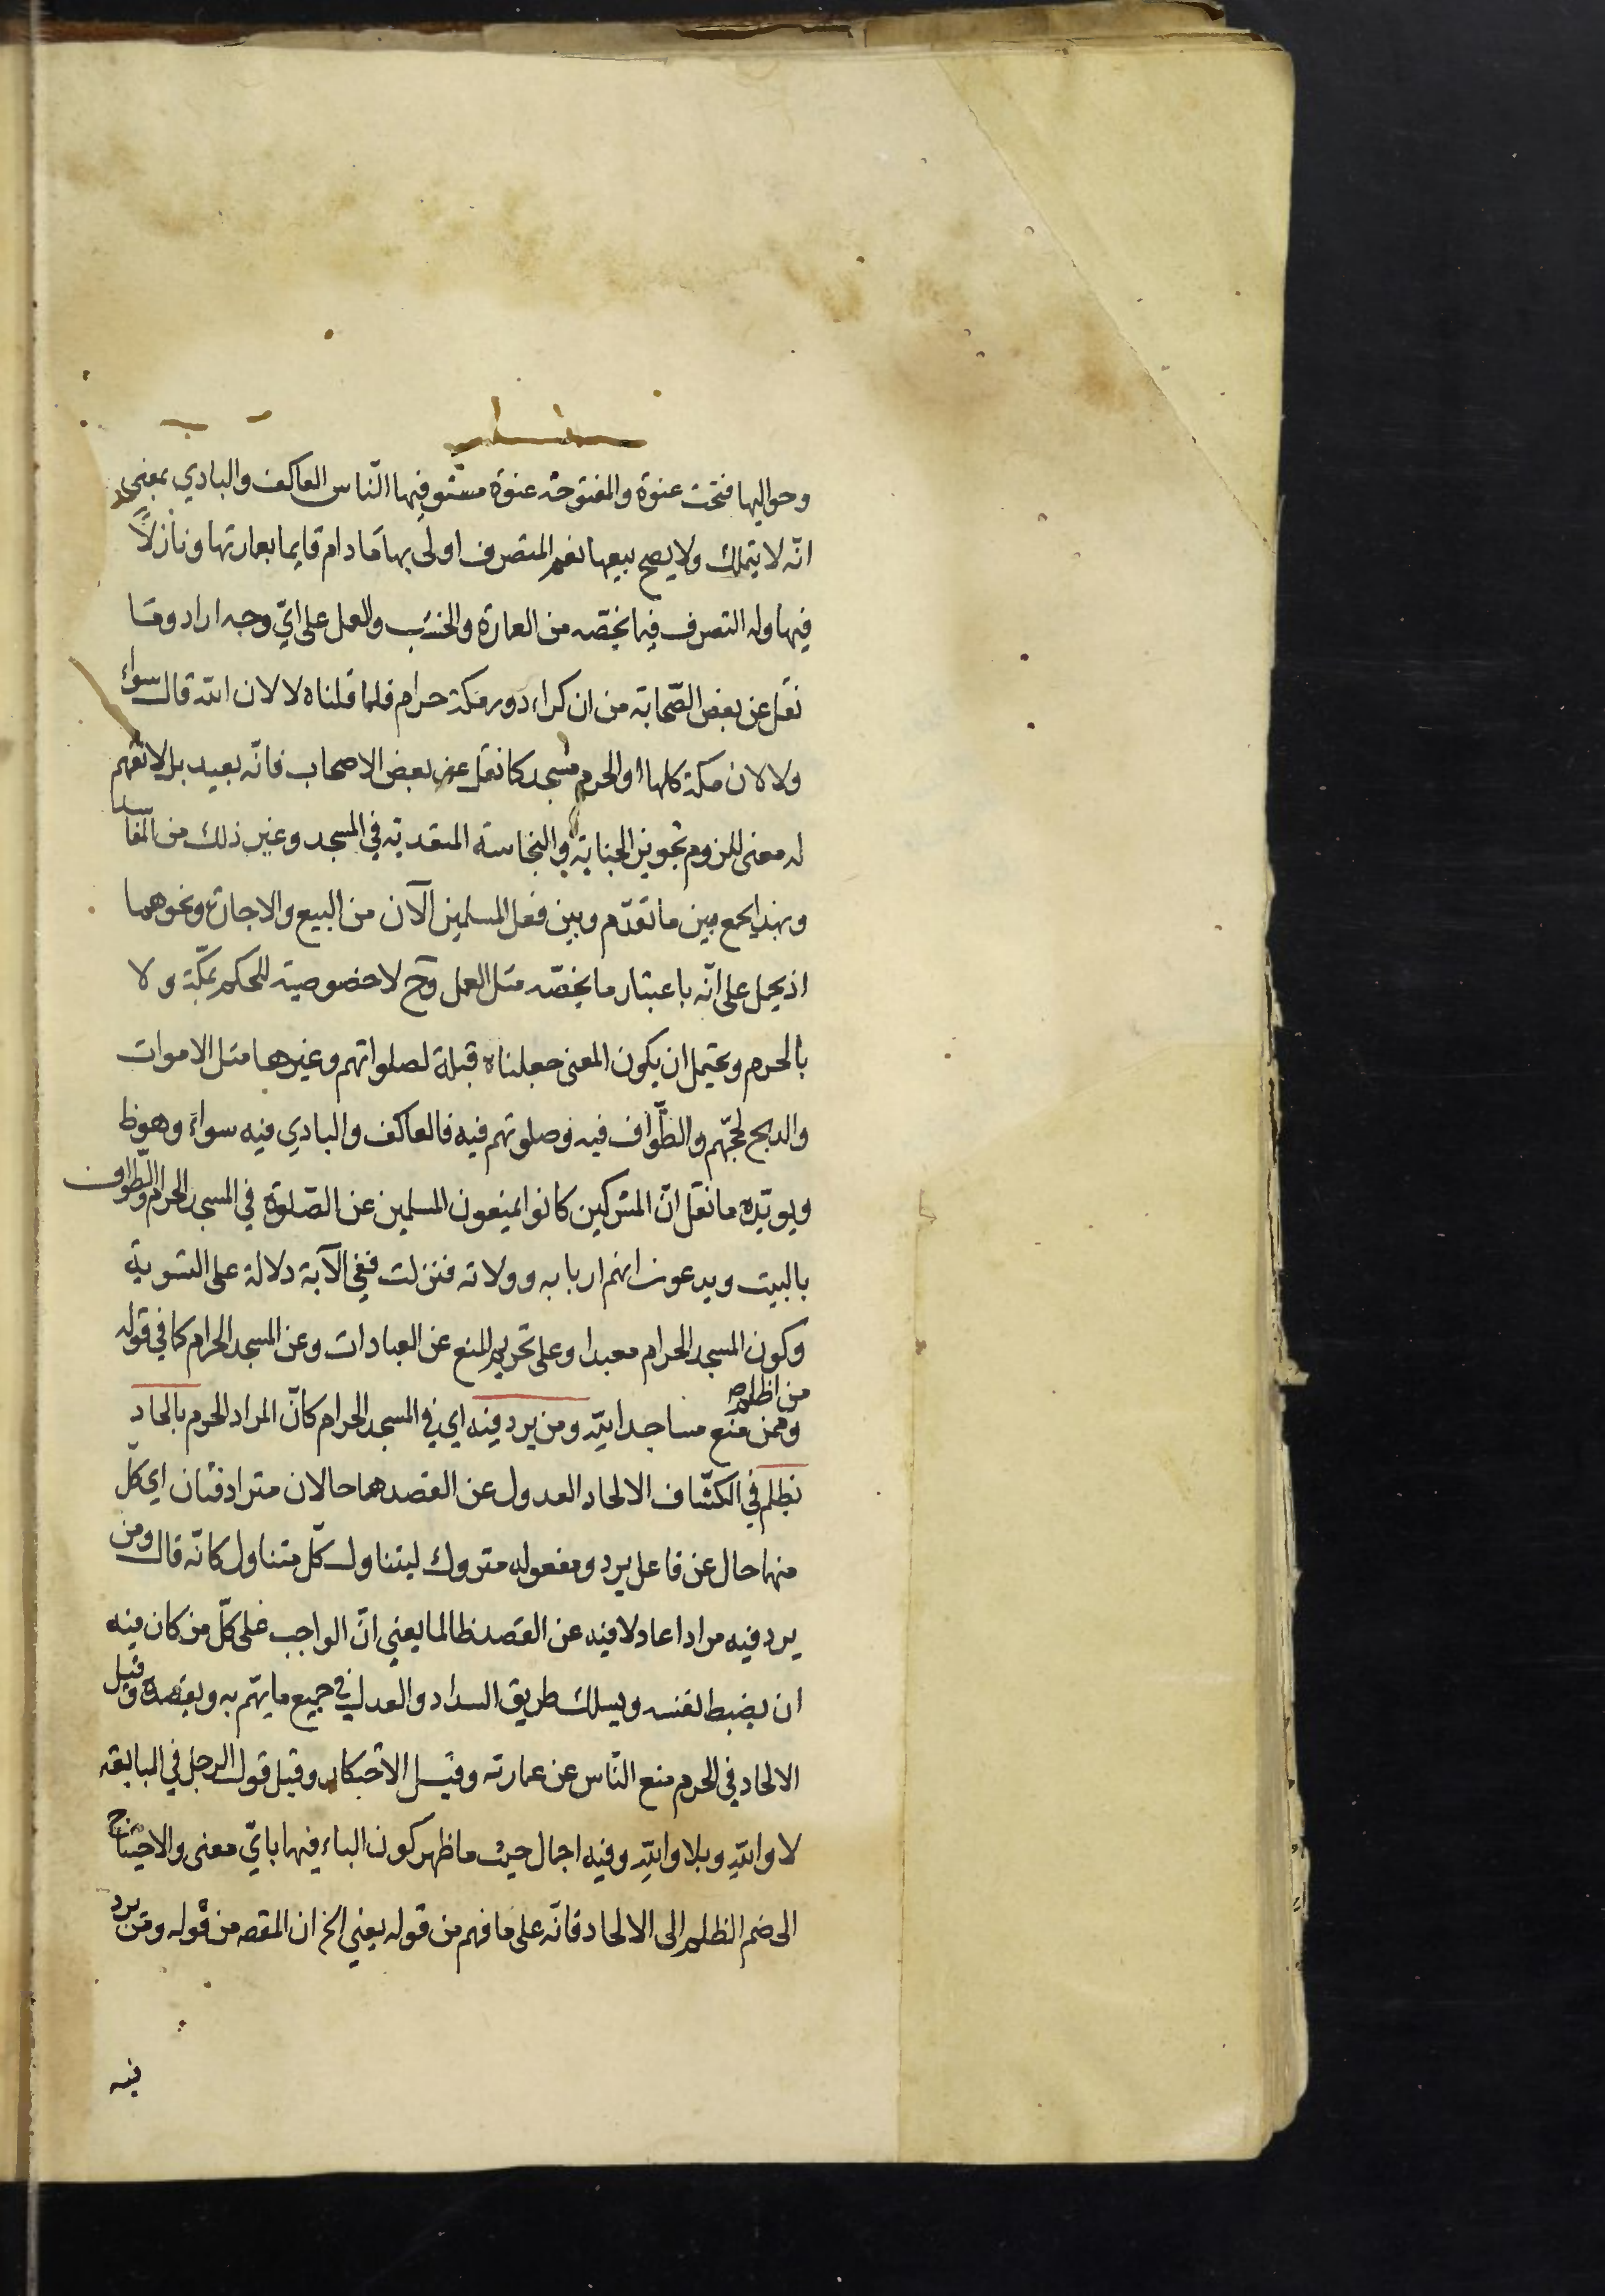 وحواليها فتحت عنوة والمفتوحة عنوة مستو فيها النّاس العاكف والبادي بمعنى
انّه لا يتملك ولا يصح بيعها نعم المتصرف اولى بها ما دام قايما بعمارتها ونازلاً
فيها وله التصرف فيما يخصّه من العمارة والخشب والعمل على ايّ وجه اراد وما
نقل عن بعض الصّحابة من ان كراء دور مكة حرام فلما قلناه لا لان الله قال سواء
ولا لان مكة كلها او الحرم مسجد كما نقل عن بعض الاصحاب فانّه بعيد بل لا نفهم
له معنى للزوم تجويز الجنابة والنجاسة المتعدية في المسجد وغير ذلك من المفاسد
وبهذا يجمع بين ما تقدّم وبين فعل المسلمين الآن من البيع والاجارة ونحوهما
اذ يحمل على انّه باعتبار ما يخصّه مثل العمل وح لا خصوصية للحكم بمكّة ولا
بالحرم ويحتمل ان يكون المعنى جعلناه قبلة لصلواتهم وغيرها مثل الاموات
والذبح لحجّهم والطّواف فيه وصلوتهم فيه فالعاكف والبادي فيه سواء وهو ظ
ويويّده ما نقل انّ المشركين كانوا يمنعون المسلمين عن الصّلوة في المسجد الحرام والطّواف
بالبيت ويدعون انهم اربابه وولاته فنزلت ففي الآية دلالة على التسوية
وكون المسجد الحرام معبدا وعلى تحريم المنع عن العبادات وعن المسجد الحرام كما في قوله
من اظلم
وممن منع مساجد الله ومن يرد فيه اي في المسجد الحرام كانّ المراد الحرم بالحاد
بظلم في الكشّاف الالحاد العدول عن القصد هما حالان مترادفتان اي كلّ
منهما حال عن فاعل يرد ومفعوله متروك ليتناول كلّ متناول كانّه قال ومن
يرد فيه مرادا عادلا فيه عن القصد ظالما يعني انّ الواجب على كلّ من كان فيه
ان يضبط نفسه ويسلك طريق السداد والعدل في جميع ما يهّم به ويقصده وقيل
الالحاد في الحرم منع النّاس عن عمارته وقيل الاحتكار وقيل قول الرجل في المبايعة
لا والله وبلا والله وفيه اجمال حيث ما ظهر كون الباء فيها بايّ معنى والاحتياج
الى ضم الظلم الى الالحاد فانّه على ما فهم من قوله يعني الخ ان المقصه من قوله ومن يرد
فيه